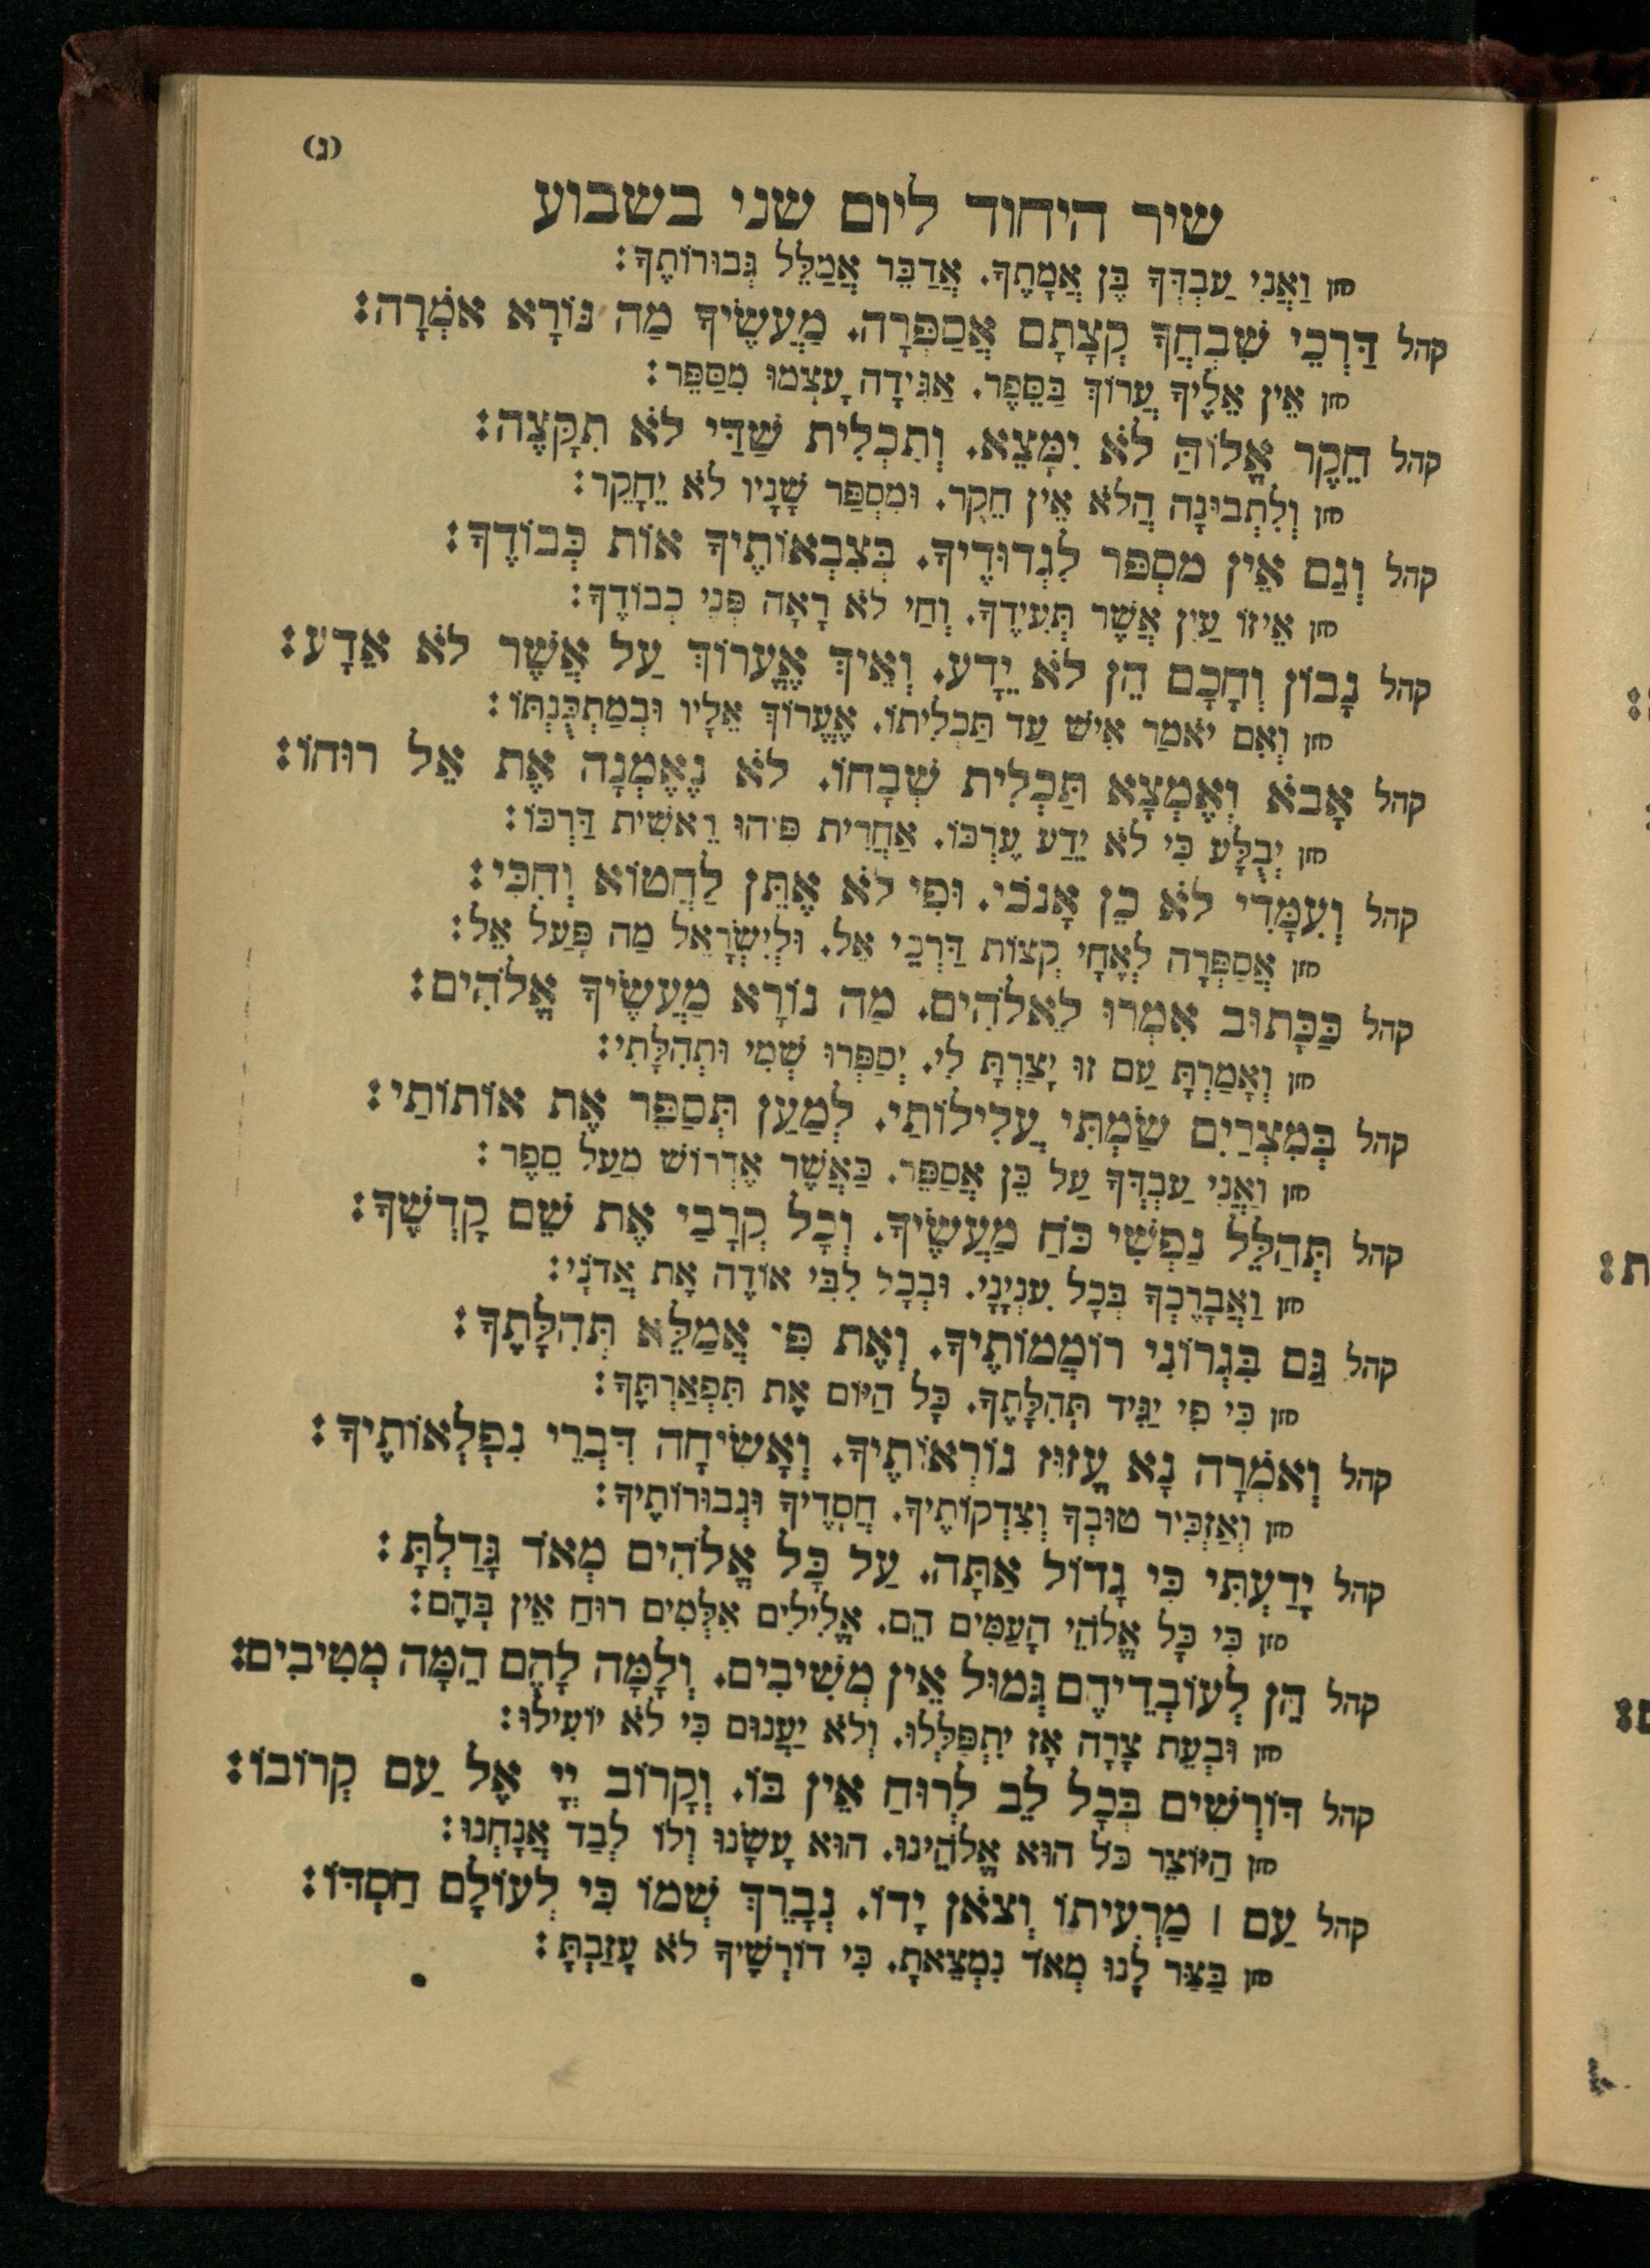 (ג)
שיר היחוד ליום שני בשבוע
חזן וַאֲנִי עַבְדְּךָ בֶּן אֲמָתֶךָ. אֲדַבֵּר אֲמַלֵּל גְּבוּרוֹתֶךָ:
קהל דַּרְכֵי שִׁבְחֲךָ קְצָתָם אֲסַפְּרָה. מַעֲשֶׂיךָ מַה נּוֹרָא אֹמְרָה:
חזן אֵין אֵלֶיךָ עֲרוֹךְ בַּסֵּפֶר. אַגִּידָה עָצְמוּ מִסַּפֵּר:
קהל חֵקֶר אֱלוֹהַּ לֹא יִמָּצֵא. וְתִכְלִית שַׁדַּי לֹא תִקָּצֶה:
חזן וְלִתְבוּנָה הֲלֹא אֵין חֵקֶר. וּמִסְפַּר שָׁנָיו לֹא יֵחָקֵר:
קהל וְגַם אֵין מִסְפּר לִגְדוּדֶיךָ. בְּצִבְאוֹתֶיךָ אוֹת כְּבוֹדֶךָ:
חזן אֵיזוֹ עַיִן אֲשֶׁר תְּעִידֶךָ. וְחַי לֹא רָאָה פְּנֵי כְבוֹדֶךָ:
קהל נָבוֹן וְחָכָם הֵן לֹא יֵדָע. וְאֵיךְ אֶעֱרוֹךְ עַל אֲשֶׁר לֹא אֵדָע:
חזן וְאִם יֹאמַר אִישׁ עַד תַּכְלִיתוֹ. אֶעֱרוֹךְ אֵלָיו וּבְמַתְכֻּנְתּוֹ:
קהל אָבֹא וְאֶמְצָא תַּכְלִית שְׁבָחוֹ. לֹא נֶאֶמְנָה אֶת אֵל רוּחוֹ:
חזן יְבֻלָּע כִּי לֹא יֵדַע עֶרְכּוֹ. אַחֲרִית פִּיהוּ רֵאשִׁית דַּרְכּוֹ:
קהל וְעִמָּדִי לֹא כֵן אָנֹכִי. וּפִי לֹא אֶתֵּן לַחֲטוֹא וְחִכִּי:
חזן אֲסַפְּרָה לְאֶחָי קְצוֹת דַּרְכֵי אֵל. וּלְיִשְׂרָאֵל מַה פָּעַל אֵל:
קהל כַּכָּתוּב אִמְרוּ לֵאלֹהִים. מַה נּוֹרָא מַעֲשֶׂיךָ אֱלֹהִים:
חזן וְאָמַרְתָּ עַם זוּ יָצַרְתָּ לִי. יְסַפְּרוּ שְׁמִי וּתְהִלָּתִי:
קהל בְּמִצְרַיִם שַׂמְתִּי עֲלִילוֹתַי. לְמַעַן תְּסַפֵּר אֶת אוֹתוֹתַי:
חזן וַאֲנִי עַבְדְּךָ עַל כֵּן אֲסַפֵּר. כַּאֲשֶׁר אֶדְרוֹשׁ מֵעַל סֵפֶר:
קהל תְּהַלֵּל נַפְשִׁי כֹּחַ מַעֲשֶׂיךָ. וְכָל קְרָבַי אֶת שֵׁם קָדְשֶׁךָ:
חזן וַאֲבָרֶכְךָ בְּכָל עִנְיָנָי. וּבְכָל לִבִּי אוֹדֶה אֶת אֲדוֹנָי:
קהל גַּם בִּגְרוֹנִי רוֹמֲמוֹתֶיךָ. וְאֶת פִּי אֲמַלֵּא תְּהִלָּתֶךָ:
חזן כִּי פִי יַגִּיד תְּהִלָּתֶךָ. כָּל הַיּוֹם אֶת תִּפְאַרְתֶּךָ:
קהל וְאֹמְרָה נָא עֱזוּז נוֹרְאוֹתֶיךָ. וְאָשִׂיחָה דִּבְרֵי נִפְלְאוֹתֶיךָ:
חזן וְאַזְכִּיר טוּבְךָ וְצִדְקוֹתֶיךָ. חֲסָדֶיךָ וּגְבוּרוֹתֶיךָ:
קהל יָדַעְתִּי כִּי גָדוֹל אַתָּה. עַל כָּל אֱלֹהִים מְאֹד גָּדַלְתָּ:
חזן כִּי כָּל אֱלֹהֵי הָעַמִּים הֵם. אֱלִילִים אִלְּמִים רוּחַ אֵין בָּהֶם:
קהל הֵן לְעוֹבְדֵיהֶם גְּמוּל אֵין מְשִׁיבִים. וְלָמָּה לָהֶם הֵמָּה מְטִיבִים:
חזן וּבְעֵת צָרָה אָז יִתְפַּלְּלוּ. וְלֹא יַעֲנוּם כִּי לֹא יוֹעִילוּ:
קהל דּוֹרְשִׁים בְּכָל לֵב לְרוּחַ אֵין בּוֹ. וְקָרוֹב יְיָ אֶל עַם קְרוֹבוֹ:
חזן הַיּוֹצֵר כֹּל הוּא אֱלֹהֵינוּ. הוּא עָשָׂנוּ וְלוֹ לְבַד אֲנַחְנוּ:
קהל עַם ׀ מַרְעִיתוֹ וְצֹאן יָדוֹ. נְבָרֵךְ שְׁמוֹ כִּי לְעוֹלָם חַסְדּוֹ:
חזן בַּצַּר לָנוּ מְאֹד נִמְצֵאתָ. כִּי דוֹרְשֶׁיךָ לֹא עָזַבְתָּ: